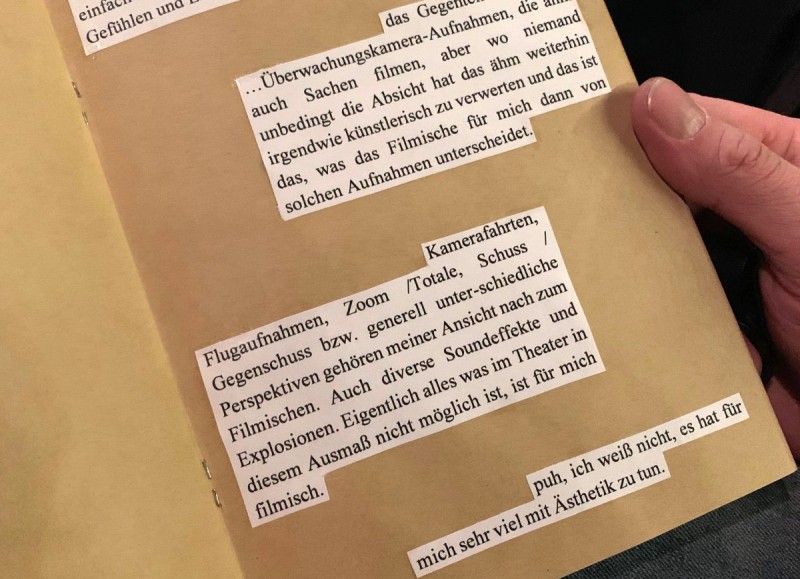 einfach
Gefühlen und
das
…Überwachungskamera-Aufnahmen, die
auch Sachen filmen, aber wo niemand
unbedingt die Absicht hat das ähm weiterhin
irgendwie künstlerisch zu verwerten und das ist
das, was das Filmische für mich dann von
solchen Aufnahmen unterscheidet.
Kamerafahrten,
Flugaufnahmen, Zoom /Totale, Schuss /
Gegenschuss bzw. generell unter-schiedliche
Perspektiven gehören meiner Ansicht nach zum
Filmischen. Auch diverse Soundeffekte und
Explosionen. Eigentlich alles was im Theater in
diesem Ausmaß nicht möglich ist, ist für mich
filmisch.
puh, ich weiß nicht, es hat für
mich sehr viel mit Ästhetik zu tun.